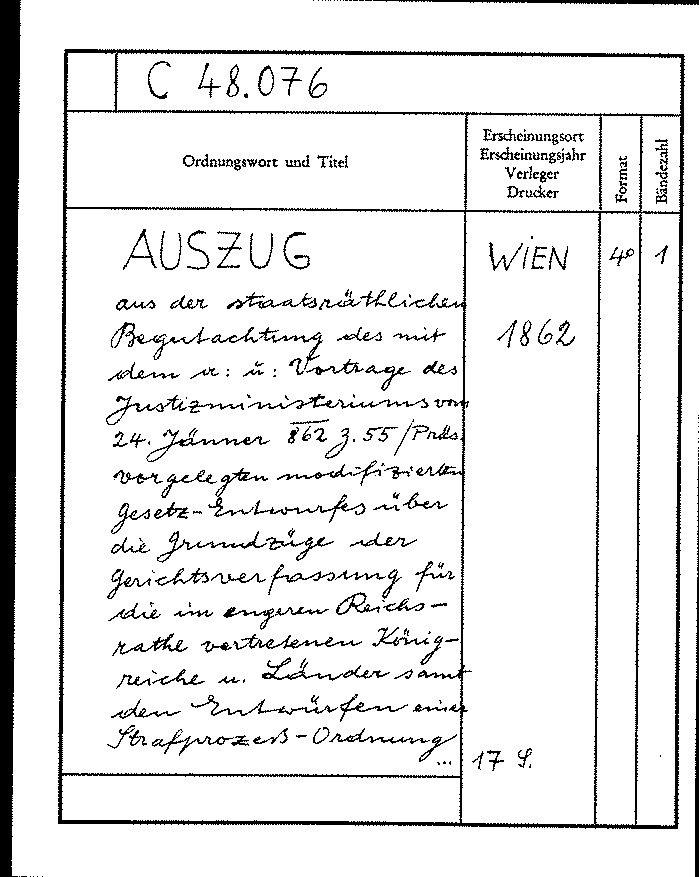 C 48.076
Ordnungswort und Titel
Erscheinungsort
Erscheinungsjahr
Verleger
Drucker
Format
Bändezahl
AUSZUG
aus der staatsräthlichen
Begutachtung des mit
dem a: u: Vortrage des
Justizministeriums vom
24. Jänner 862 Z. 55/Präs.
vorgelegten modifizierten
Gesetz-Entwurfes über
die Grundzüge der
Gerichtsverfassung für
die im engeren Reichs-
rathe vertretenen König-
reiche u. Länder samt
den Entwürfen einer
Strafprozeß-Ordnung
...
WIEN
1862
4°
1
17 S.